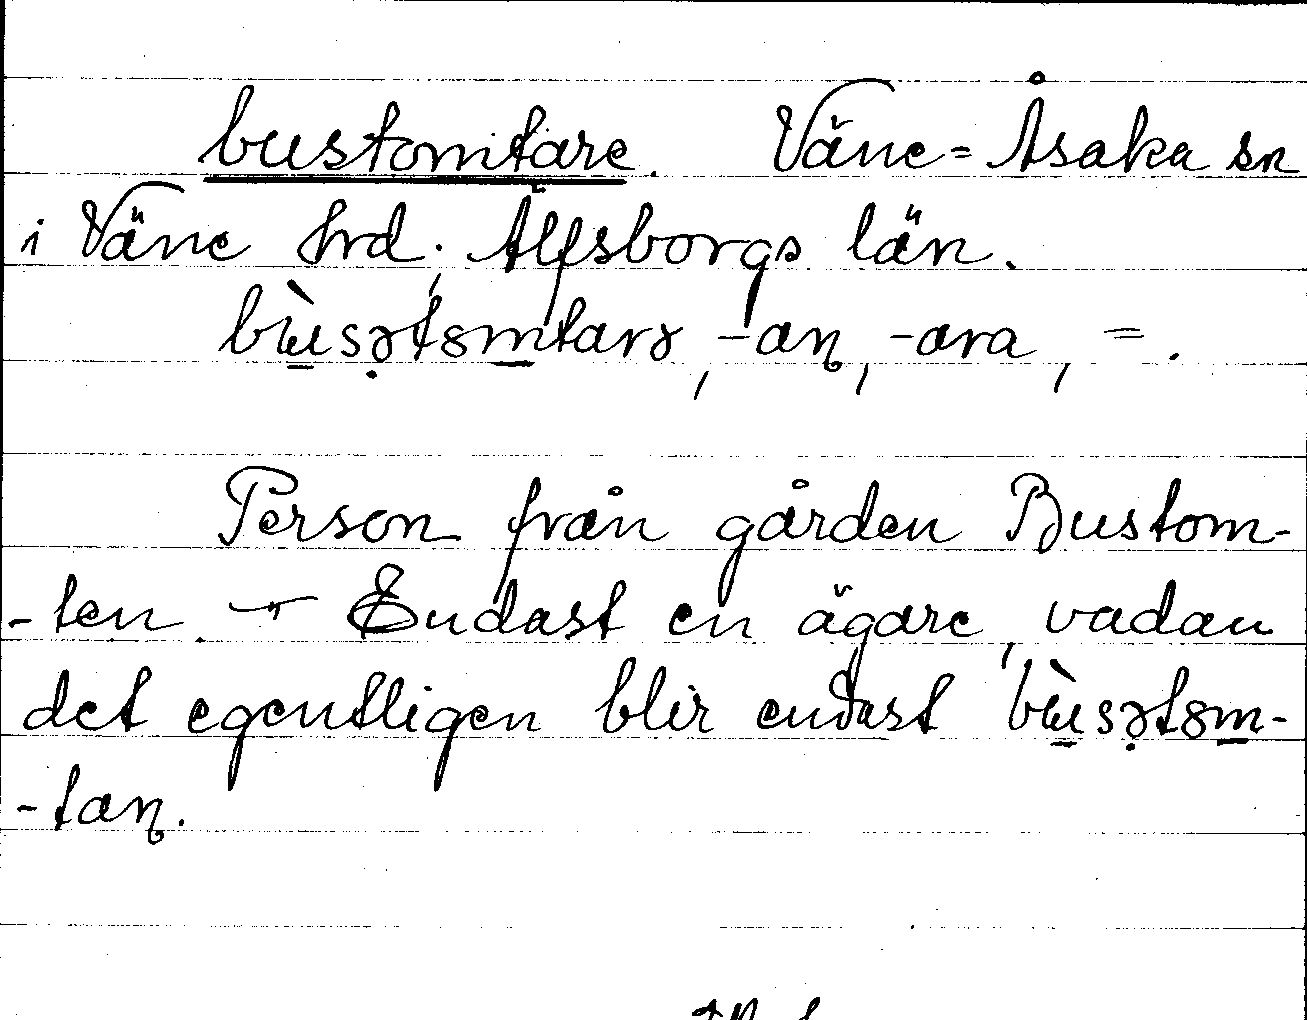 bustomtare. Väne-Åsaka sn
i Väne hrd, Älfsborgs län.
bʉ̀sətəmtarə, -aɳ, -ara, =.
Person från gården Bustom-
-ten. — Endast en ägare, vadan
det egentligen blir endast bʉ̀sətəm-
-taɳ.